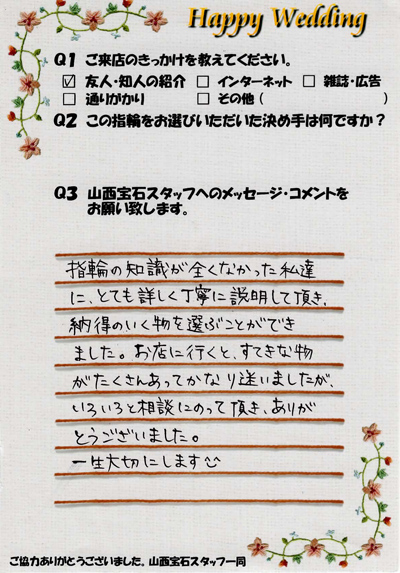 Happy Wedding
Q1 ご来店のきっかけを教えてください。
☑ 友人・知人の紹介 □ インターネット □ 雑誌・広告
□ 通りがかり □ その他 ( )
Q2 この指輪をお選びいただいた決め手は何ですか?
Q3 山西宝石スタッフへのメッセージ・コメントを
お願い致します。
指輪の知識が全くなかった私達
に、とても詳しく丁寧に説明して頂き、
納得のいく物を選ぶことができ
ました。お店に行くと、すてきな物
がたくさんあってかなり迷いましたが、
いろいろと相談にのって頂き、ありが
とうございました。
一生大切にします
ご協力ありがとうございました。山西宝石スタッフ一同